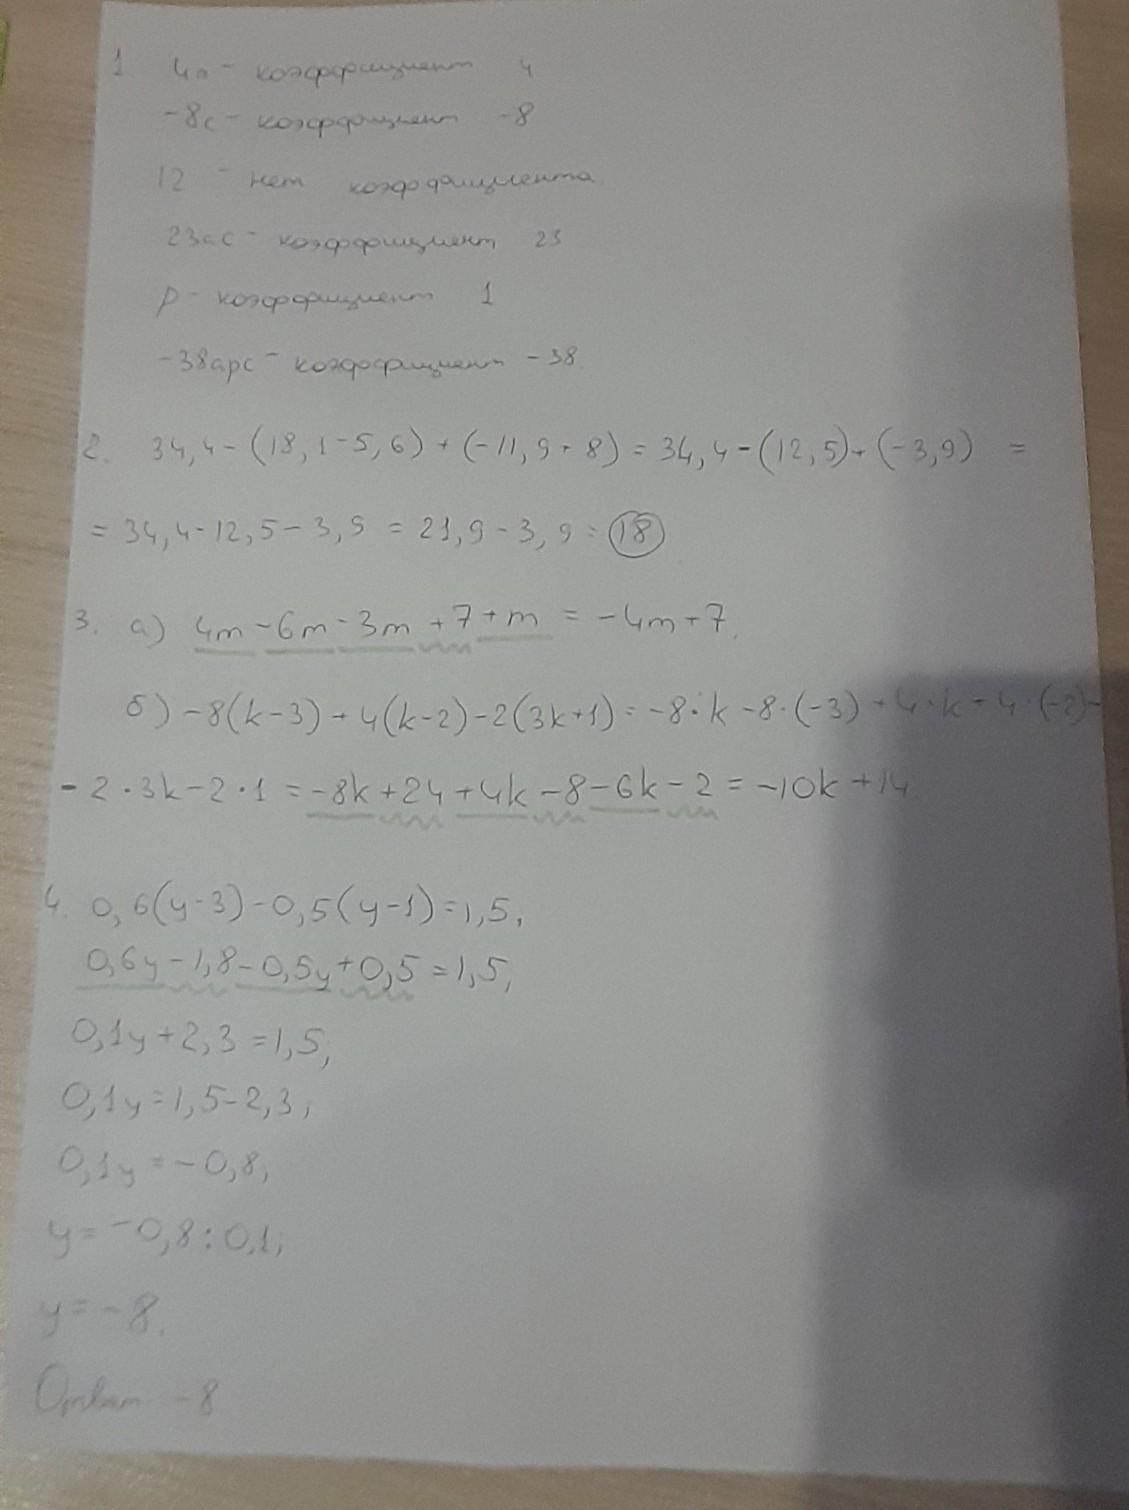 1. 4n - коэффициент 4
-8c - коэффициент -8
12 - нет коэффициента
23ac - коэффициент 23
p - коэффициент 1
-38apc - коэффициент -38.
2. 34,4-(18,1-5,6)+(-11,9+8)=34,4-(12,5)+(-3,9) =
= 34,4-12,5-3,9 = 21,9-3,9 = 18
3. а) 4m-6m-3m+7+m = -4m+7.
б) -8(k-3)+4(k-2)-2(3k+1)=-8·k-8·(-3)+4·k+4·(-2)-
-2·3k-2·1 = -8k+24+4k-8-6k-2 = -10k+14.
4. 0,6(y-3)-0,5(y-1)=1,5,
0,6y-1,8-0,5y+0,5=1,5,
0,1y+2,3=1,5,
0,1y=1,5-2,3,
0,1y=-0,8,
y=-0,8:0,1,
y=-8.
Ответ -8